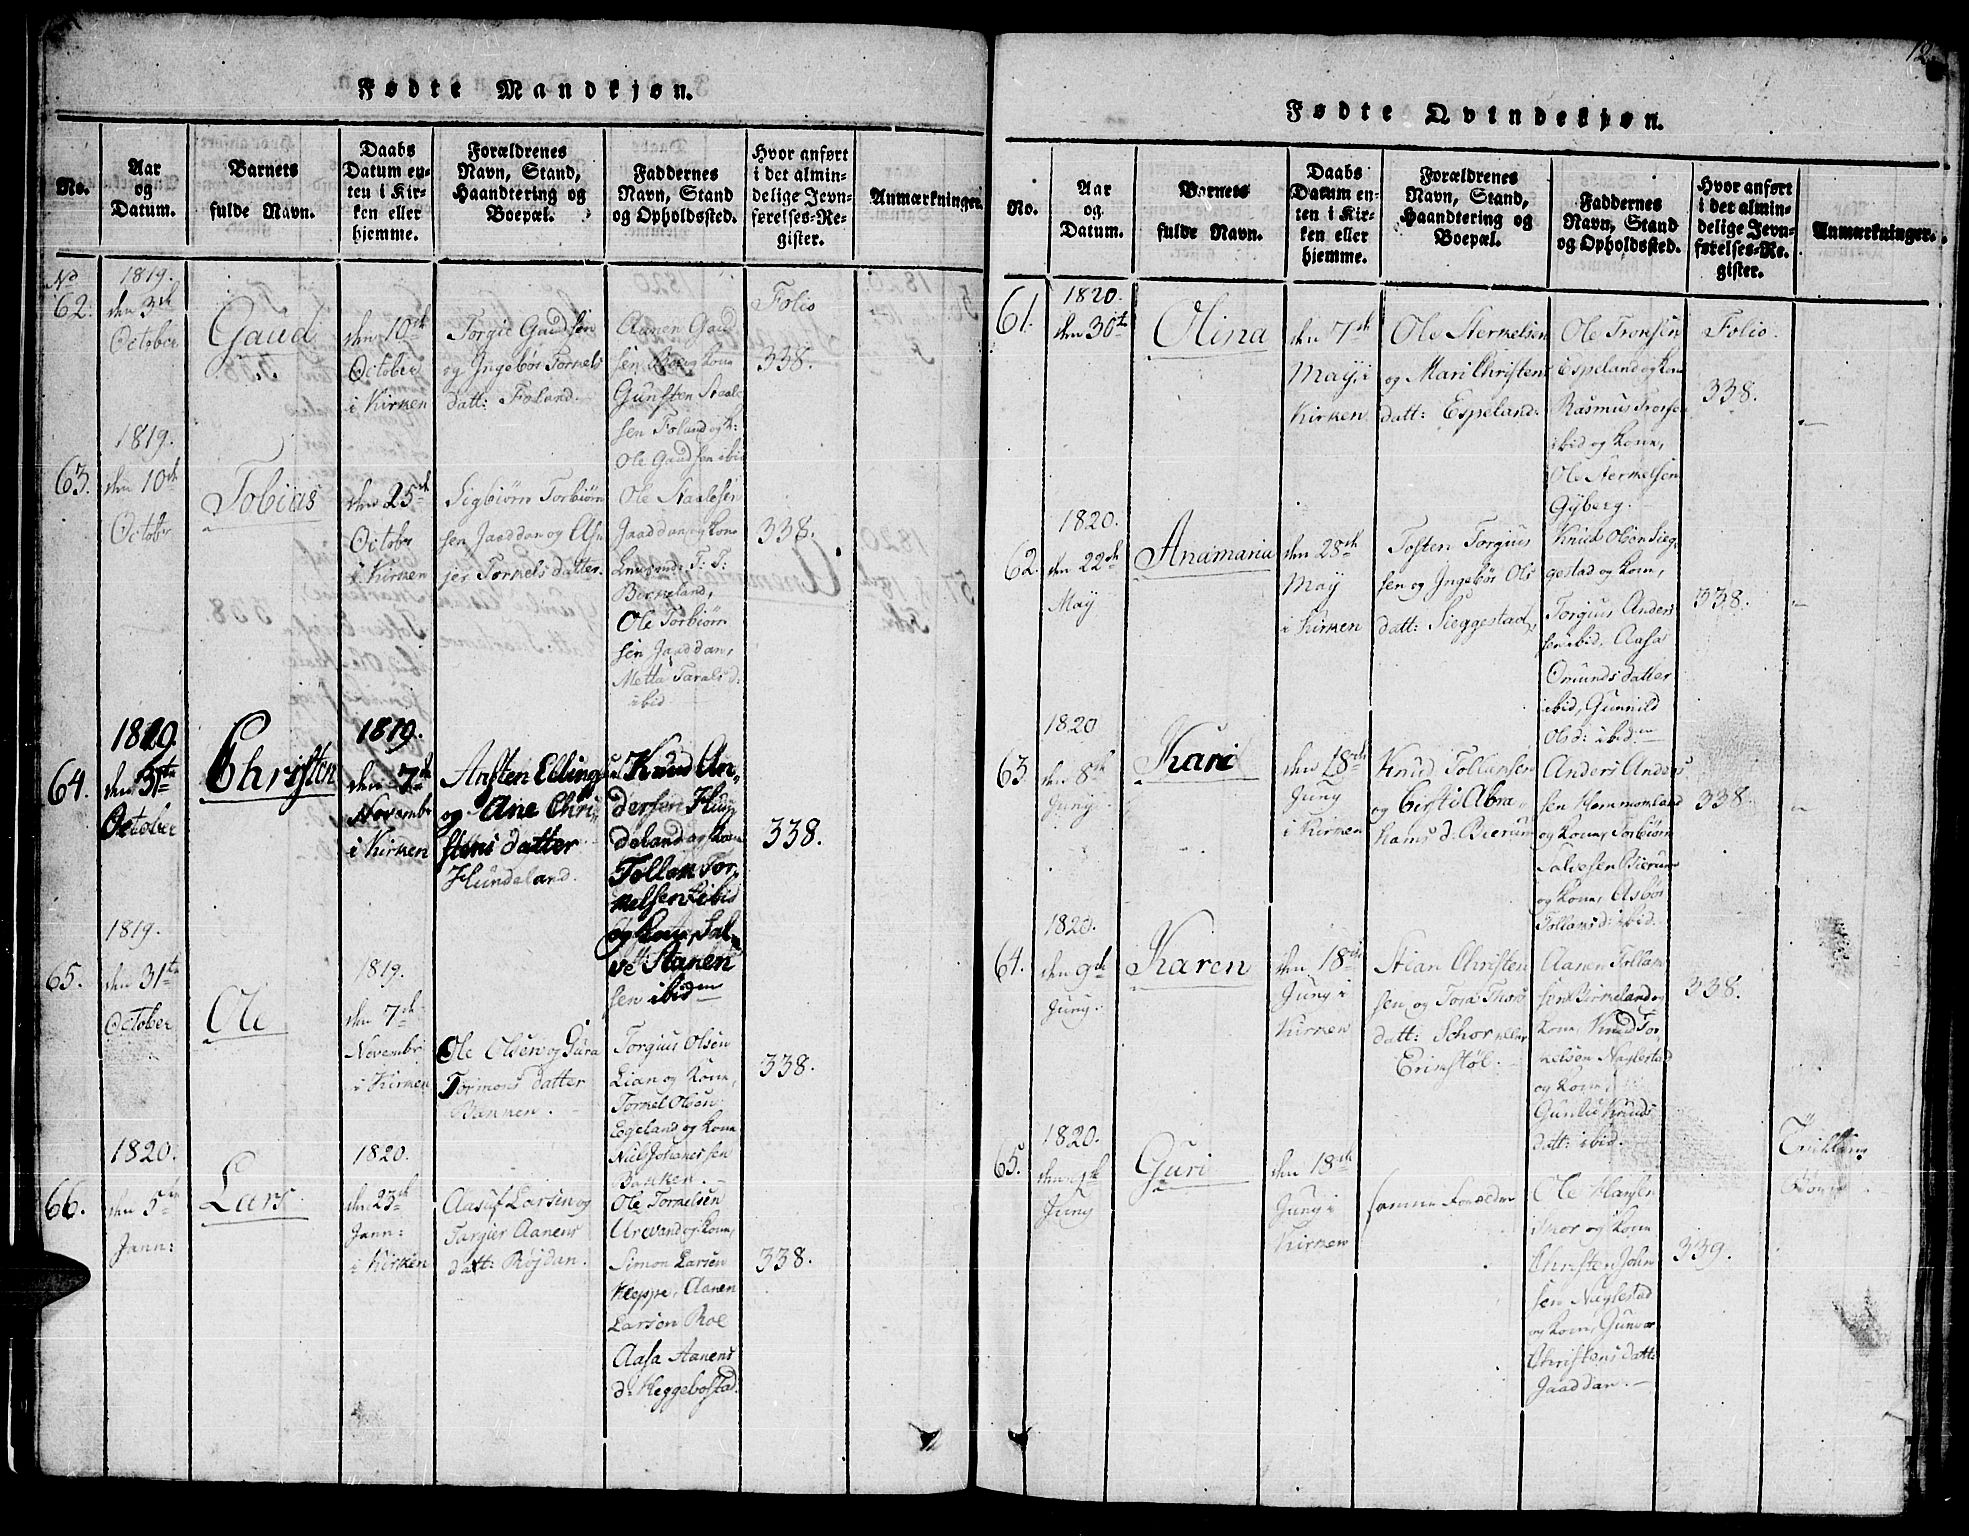 Fødte Mandkjøn.
No.
Aar
og
Datum.
Barnets
fulde Navn.
Daabs
Datum en-
ten i Kir-
ken eller
hjemme.
Forældrenes
Navn, Stand,
Haandtering og
Boepæl.
Faddernes
Navn, Stand
og Opholdssted.
Hvor anført
i det almin-
delige Jevn-
førelses-Re-
gister.
Anmærkninger.
No
62.
1819.
den 3de
October
Gaud
den 10de
October
i Kirken
Torgie Gaudsen
og Ingebør Tormels
datt: Foland.
Aanen Gaud
sen Roe og Kone
Gunsten Staale
sen Foland og K:
Ole Gaudsen ibid
Folio
338.
63.
1819.
den 10de
October
Tobias
den 25de
October
i Kirken
Sigbiørn Torbiørn
sen Jaaddan og Asu
jer Tormels datter.
Ole Staalesen
Jaaddan og Kone
T: T:
Birkeland,
Ole Torbiørn
sen Jaaddan,
Metta Tarals d:
ibid
338.
64.
1819.
den 31te
October
Christen
1819.
den 7de
Novembr
i Kirken
Ansten Elling
og Ane Chri-
stens datter
Hundeland.
Knud An-
dersen Hun-
deland og Kone
Tollom Tor-
kelsen ibid
og Kone, Sal-
ve Stanen
sen ibidem
338.
65.
1819.
den 31te
October
Ole
1819.
den 7de
Novembr
i Kirken
Ole Olsen og Gura
Tormons datter
Bakken.
Torgius Olsen
Lian og Kone,
Tormel Olsen
Egeland og Kone
Niels Johanessen
Bakken.
338.
66.
1820.
den 5te
Jann:
Lars
1820.
den 23de
Jann:
i Kirken
Aasuf Larsen og
Targier Aanens
datt: Røjdan.
Ole Tormelsen
Urevand og Kone,
Simon Larsen
Kleppe, Aanen
Larsen Roe
Aasa Aanens
d: Heggebostad.
338.
12
Fødte Qvindekjøn.
No.
Aar
og
Datum.
Barnets
fulde Navn.
Daabs
Datum en-
ten i Kir-
ken eller
hjemme.
Forældrenes
Navn, Stand,
Haandtering og
Boepæl.
Faddernes
Navn, Stand
og Opholdssted.
Hvor anført
i det almin-
delige Jevn-
førelses-Re-
gister.
Anmærkninger.
61.
1820.
den 30te
Olina
den 7de
May i
Kirken
Ole Sterkelsen
og Mari Christens
datt: Espeland.
Ole Tronsen
Espeland og Kone
Rasmus Tronsen
ibid og Kone,
Ole Sterkelsen
Gyberg.
Folio.
338.
62.
1820.
den 22de
May
Anamaria
den 28de
May
i Kirken
Tosten Torgius
sen og Ingebør Ols
datt: Sieggestad.
Knud Olsen Sieg-
gestad og Kone,
Torgius Anders
sen ibid, Aasa
Omunds datter
ibid, Gunnild
Olsd: ibidem
338.
63
1820
den 8de
Juny.
Kari
den 18de
Juny
i Kirken
Knud Tollansen
og Girsti Abra-
hams d: Bierum
Anders Anders
sen Hommomland
og Kone, Torbiørn
Salvesen Bierum
og Kone, Asbør
Tollans d: ibid.
338.
64.
1820.
den 9de
Juny.
Karen
den 18de
Juny i
Kirken
Stian Christen
sen og Tora Thors
datt:
Erikstøl.
Aanen Tollam
sen Birkeland og
Kone, Knud Tor-
kelsen Naglestad
og Kone,
Gunlu Knuds
datt: ibid.
338.
65.
1820.
den
Juny
Guri
den 18de
Juny i
Kirken
samme Forældre
Ole
og Kone
Christen John
sen Naglestad
og Kone, Gunvor
Christens datt:
Jaaddan.
339.
Tvilling